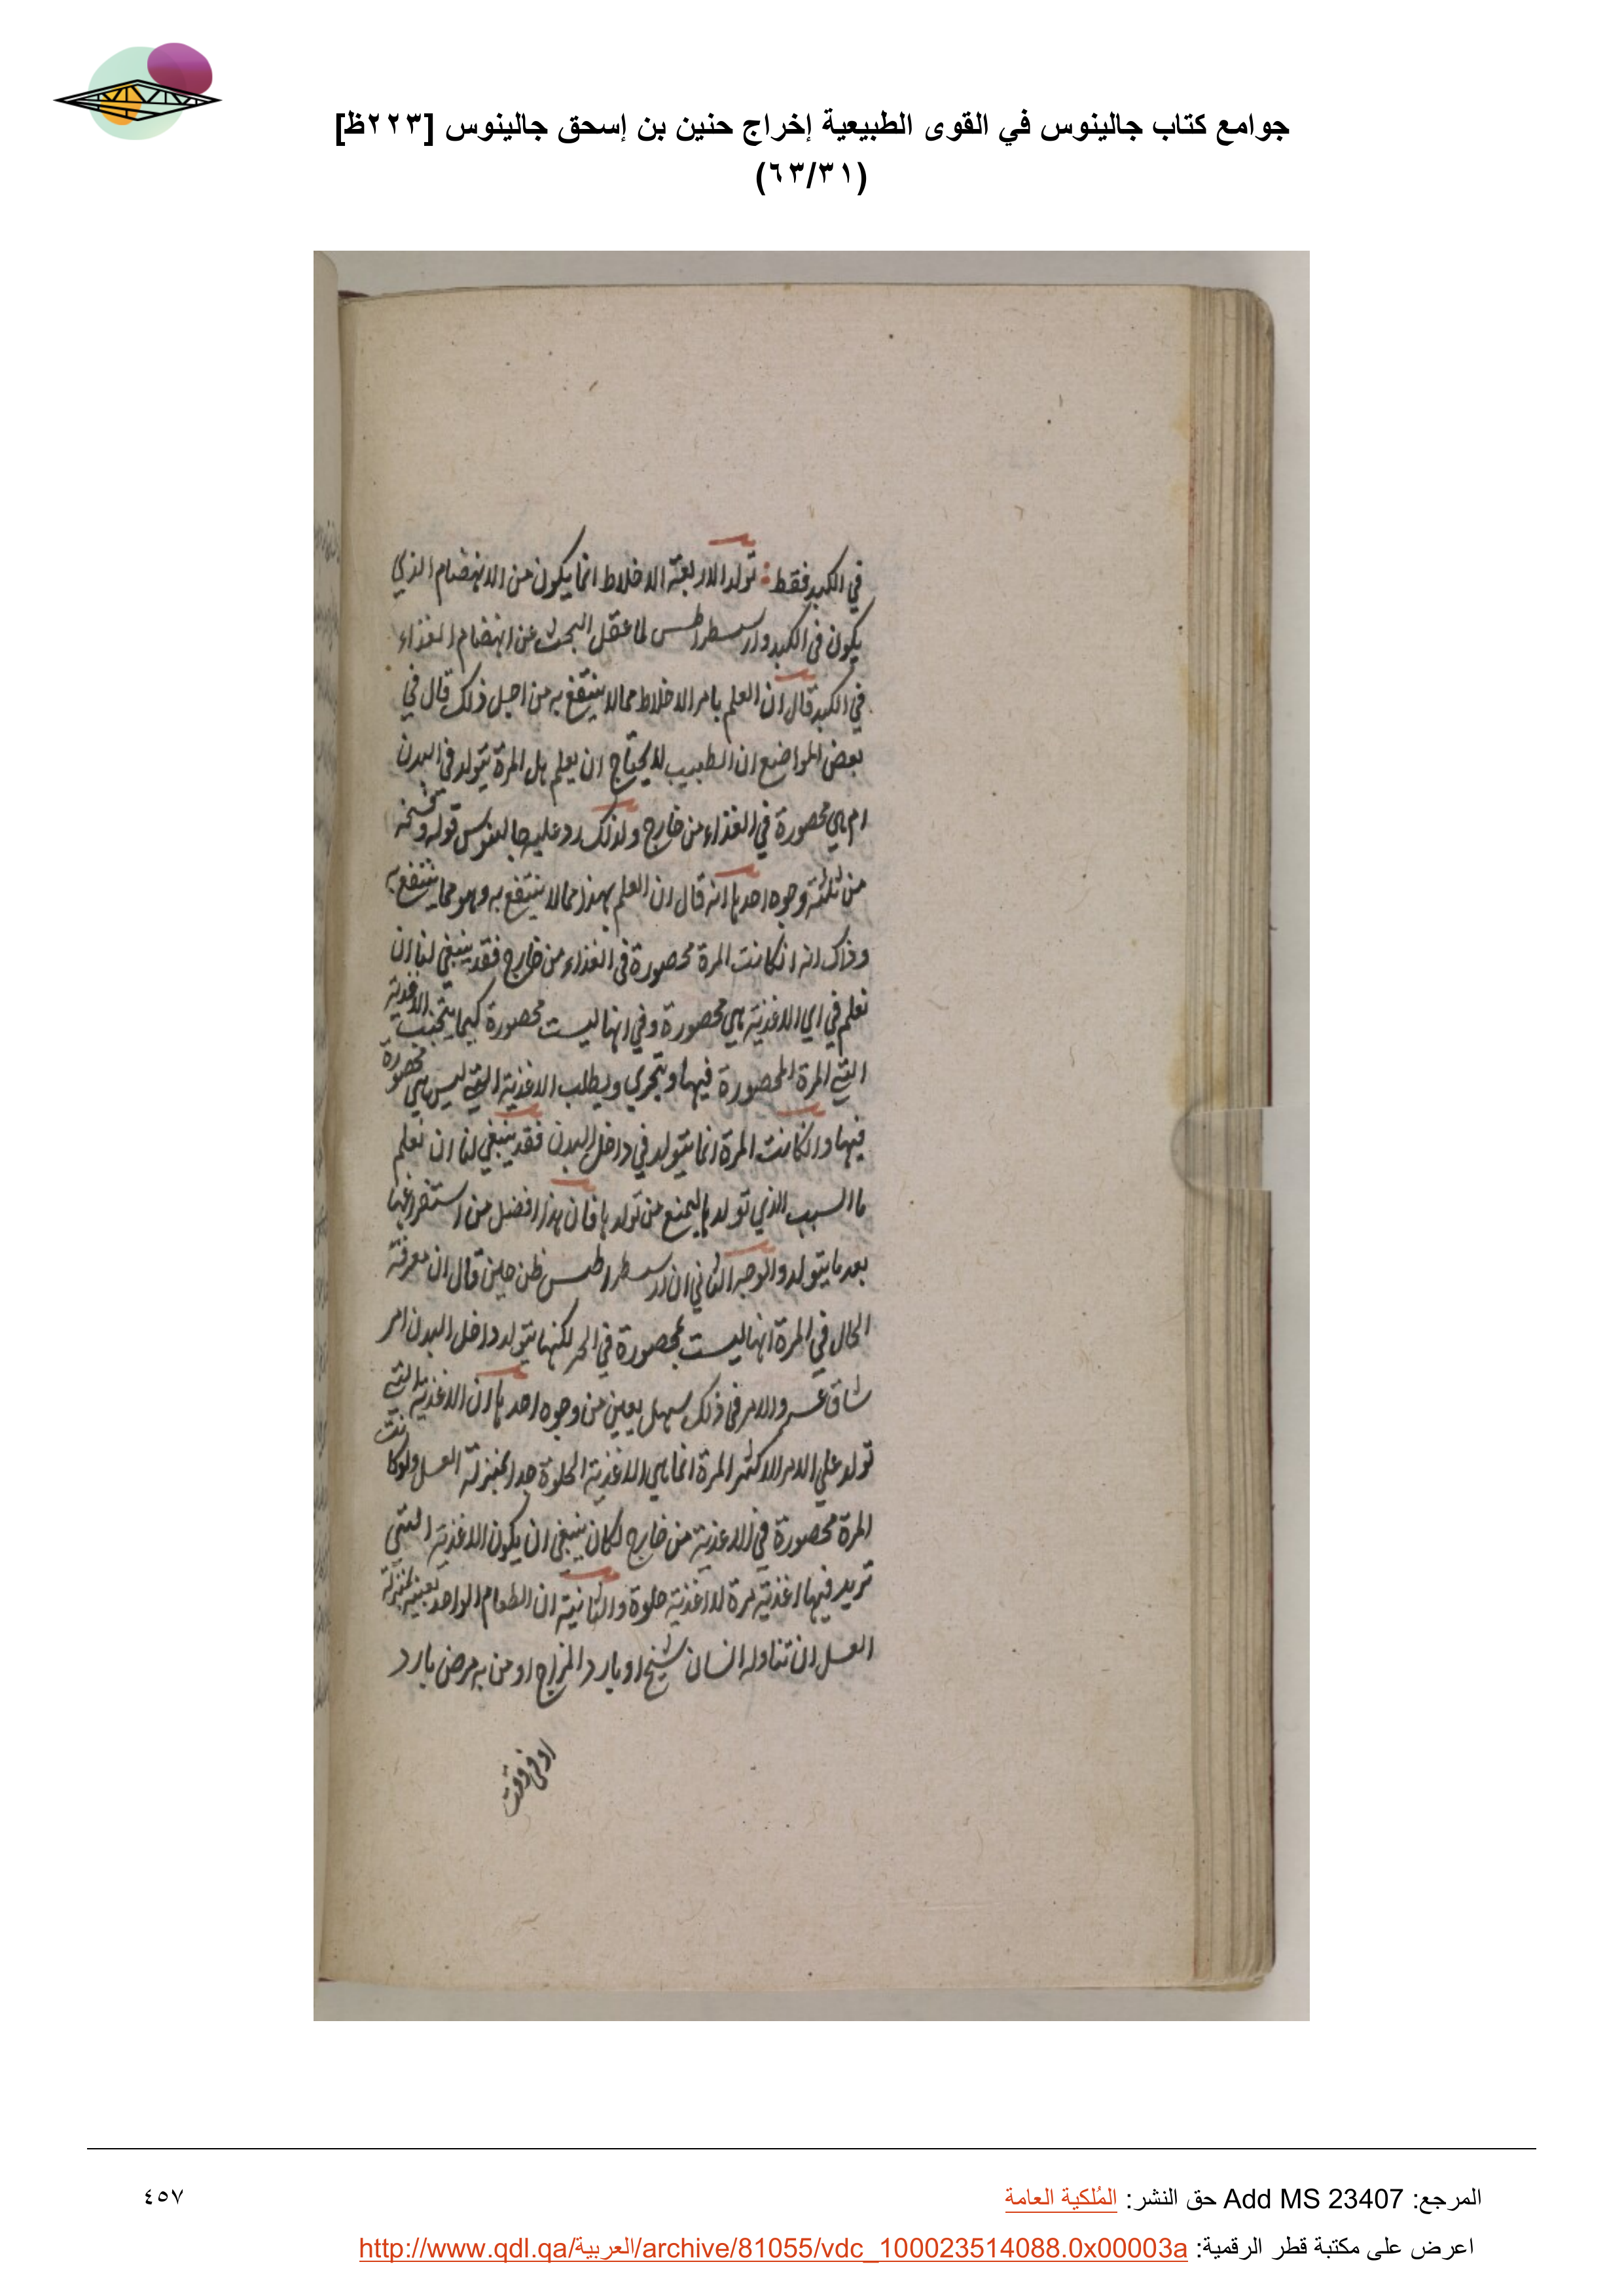 جوامع كتاب جالينوس في القوى الطبيعية إخراج حنين بن إسحق جالينوس [٢٢٣ظ]
(٦٣/٣١)
في الكبد فقط: تولد الاربعة الاخلاط انما يكون من الانهضام الذي
يكون في الكبد وارسطراطس لما عقل البحث عن انهضام الغذاء
في الكبد قال ان العلم بامر الاخلاط مما لا ينتفع به من اجل ذلك قال في
بعض المواضع ان الطبيب لا يحتاج ان يعلم هل المرة تتولد في البدن
ام هي محصورة في الغذاء من خارج ولذلك رد عليه جالينوس قوله
من ثلثة وجوه احدها انه قال ان العلم بهذا مما لا ينتفع به وهو مما ينتفع به
وذاك انه ان كانت المرة محصورة في الغذاء من خارج فقد ينبغي لنا ان
نعلم في اي الاغذية هي محصورة وفي ايها ليست محصورة كيما يتجنب الاغذية
التي المرة المحصورة فيها ويتحرى ويطلب الاغذية التي ليس هي محصورة
فيها وان كانت المرة انما يتولد في داخل البدن فقد ينبغي لنا ان نعلم
ما السبب الذي تولدها ليمنع من تولدها فان هذا افضل من استفراغها
بعد ما يتولد والوجه الثاني ان ارسطراطس ظن حين قال ان معرفة
الحال في المرة انها ليست بمحصورة في لكنها يتولد داخل البدن امر
شاق عسر والامر في ذلك سهل يعين من وجوه احدها ان الاغذية التي
تولد على الامر الاكثر المرة انما هي الاغذية الحلوة جدا بمنزلة العسل ولو كانت
المرة محصورة في الاغذية من خارج لكان ينبغي ان يكون الاغذية التي
تريد فيها اغذية مرة لا اغذية حلوة والثانية ان الطعام الواحد بعينه بمنزلة
العسل ان تناوله انسان شيخ او بارد المزاج او من به مرض بارد
او في وقت
المرجع: Add MS 23407 حق النشر: المُلكية العامة
٤٥٧
اعرض على مكتبة قطر الرقمية: http://www.qdl.qa/العربية/archive/81055/vdc_100023514088.0x00003a